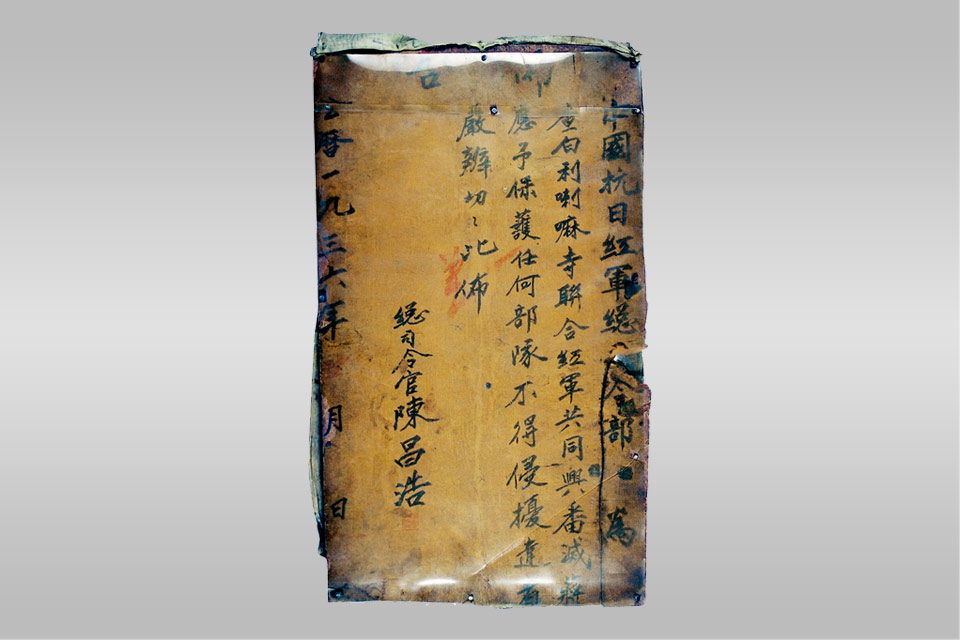 佈告
中國抗日紅軍總司令部 為
查白利喇嘛寺聯合紅軍共同興番滅蔣
應予保護任何部隊不得侵擾違者
嚴辦切〻此佈
總司令官陳昌浩
公曆一九三六年 月 日